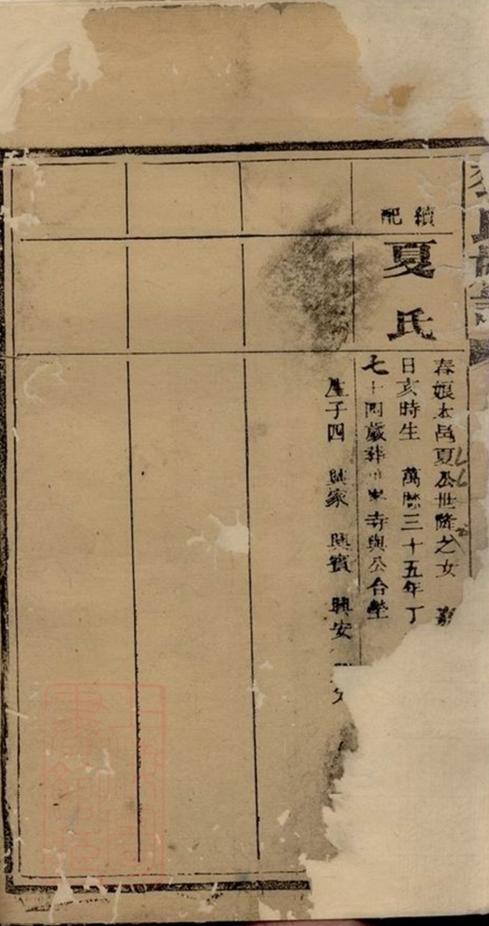 續配
夏氏
春娘本邑夏公世隆之女
日亥時生 萬曆三十五年丁
七十四歲葬 寺與公合塋
生子四 興家 興賓 興安